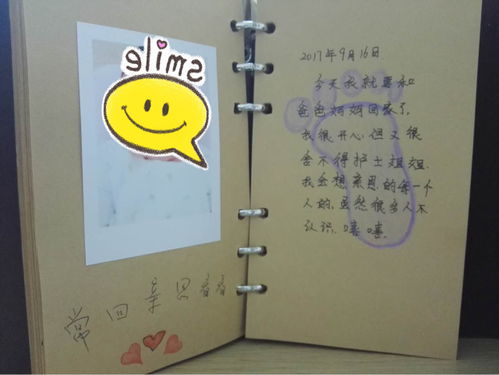 Smile
常回亲恩看看
2017年9月16日
今天我就要和
爸爸妈妈回家了,
我很开心,但又很
舍不得护士姐姐.
我会想亲恩的每一个
人的,虽然很多人不
认识.嘻嘻.